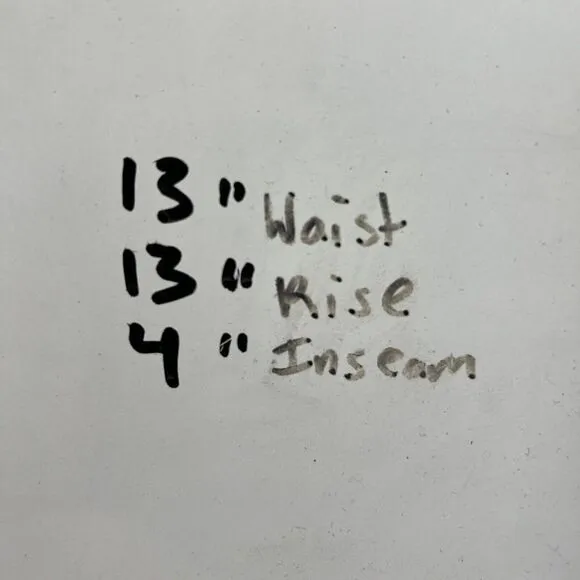 13" Waist
13" Rise
4" Inseam